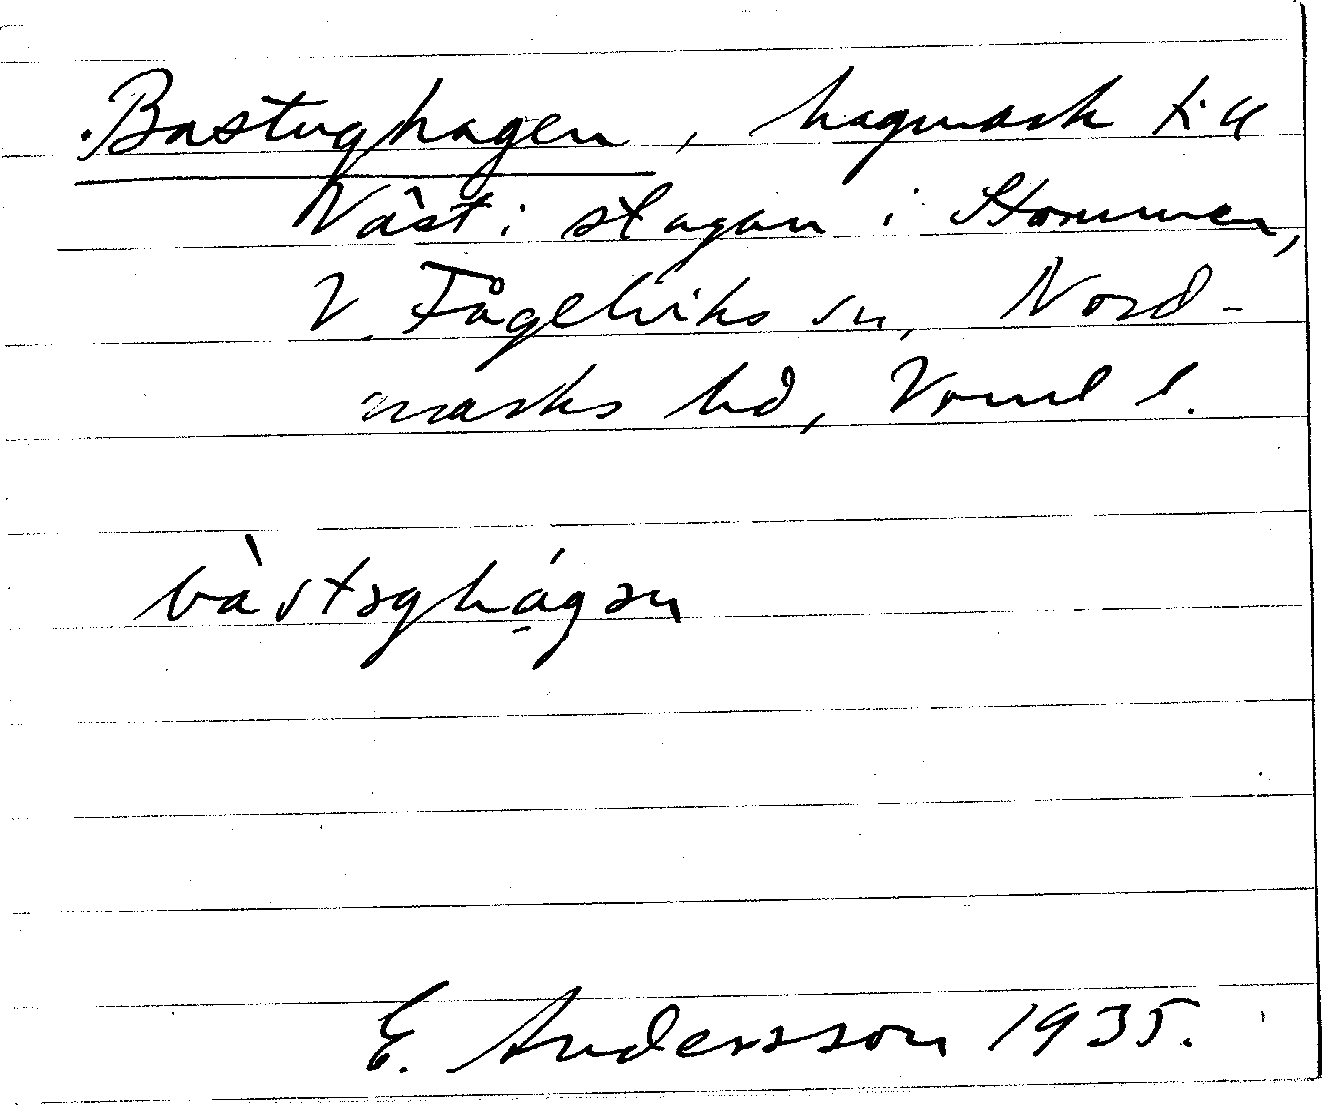 Bastughagen, hagmark till
Näst i stugan i Stommen,
V Fågelviks sn, Nord-
marks hd, Vrml l.
bàstəghágən
E. Andersson 1935.